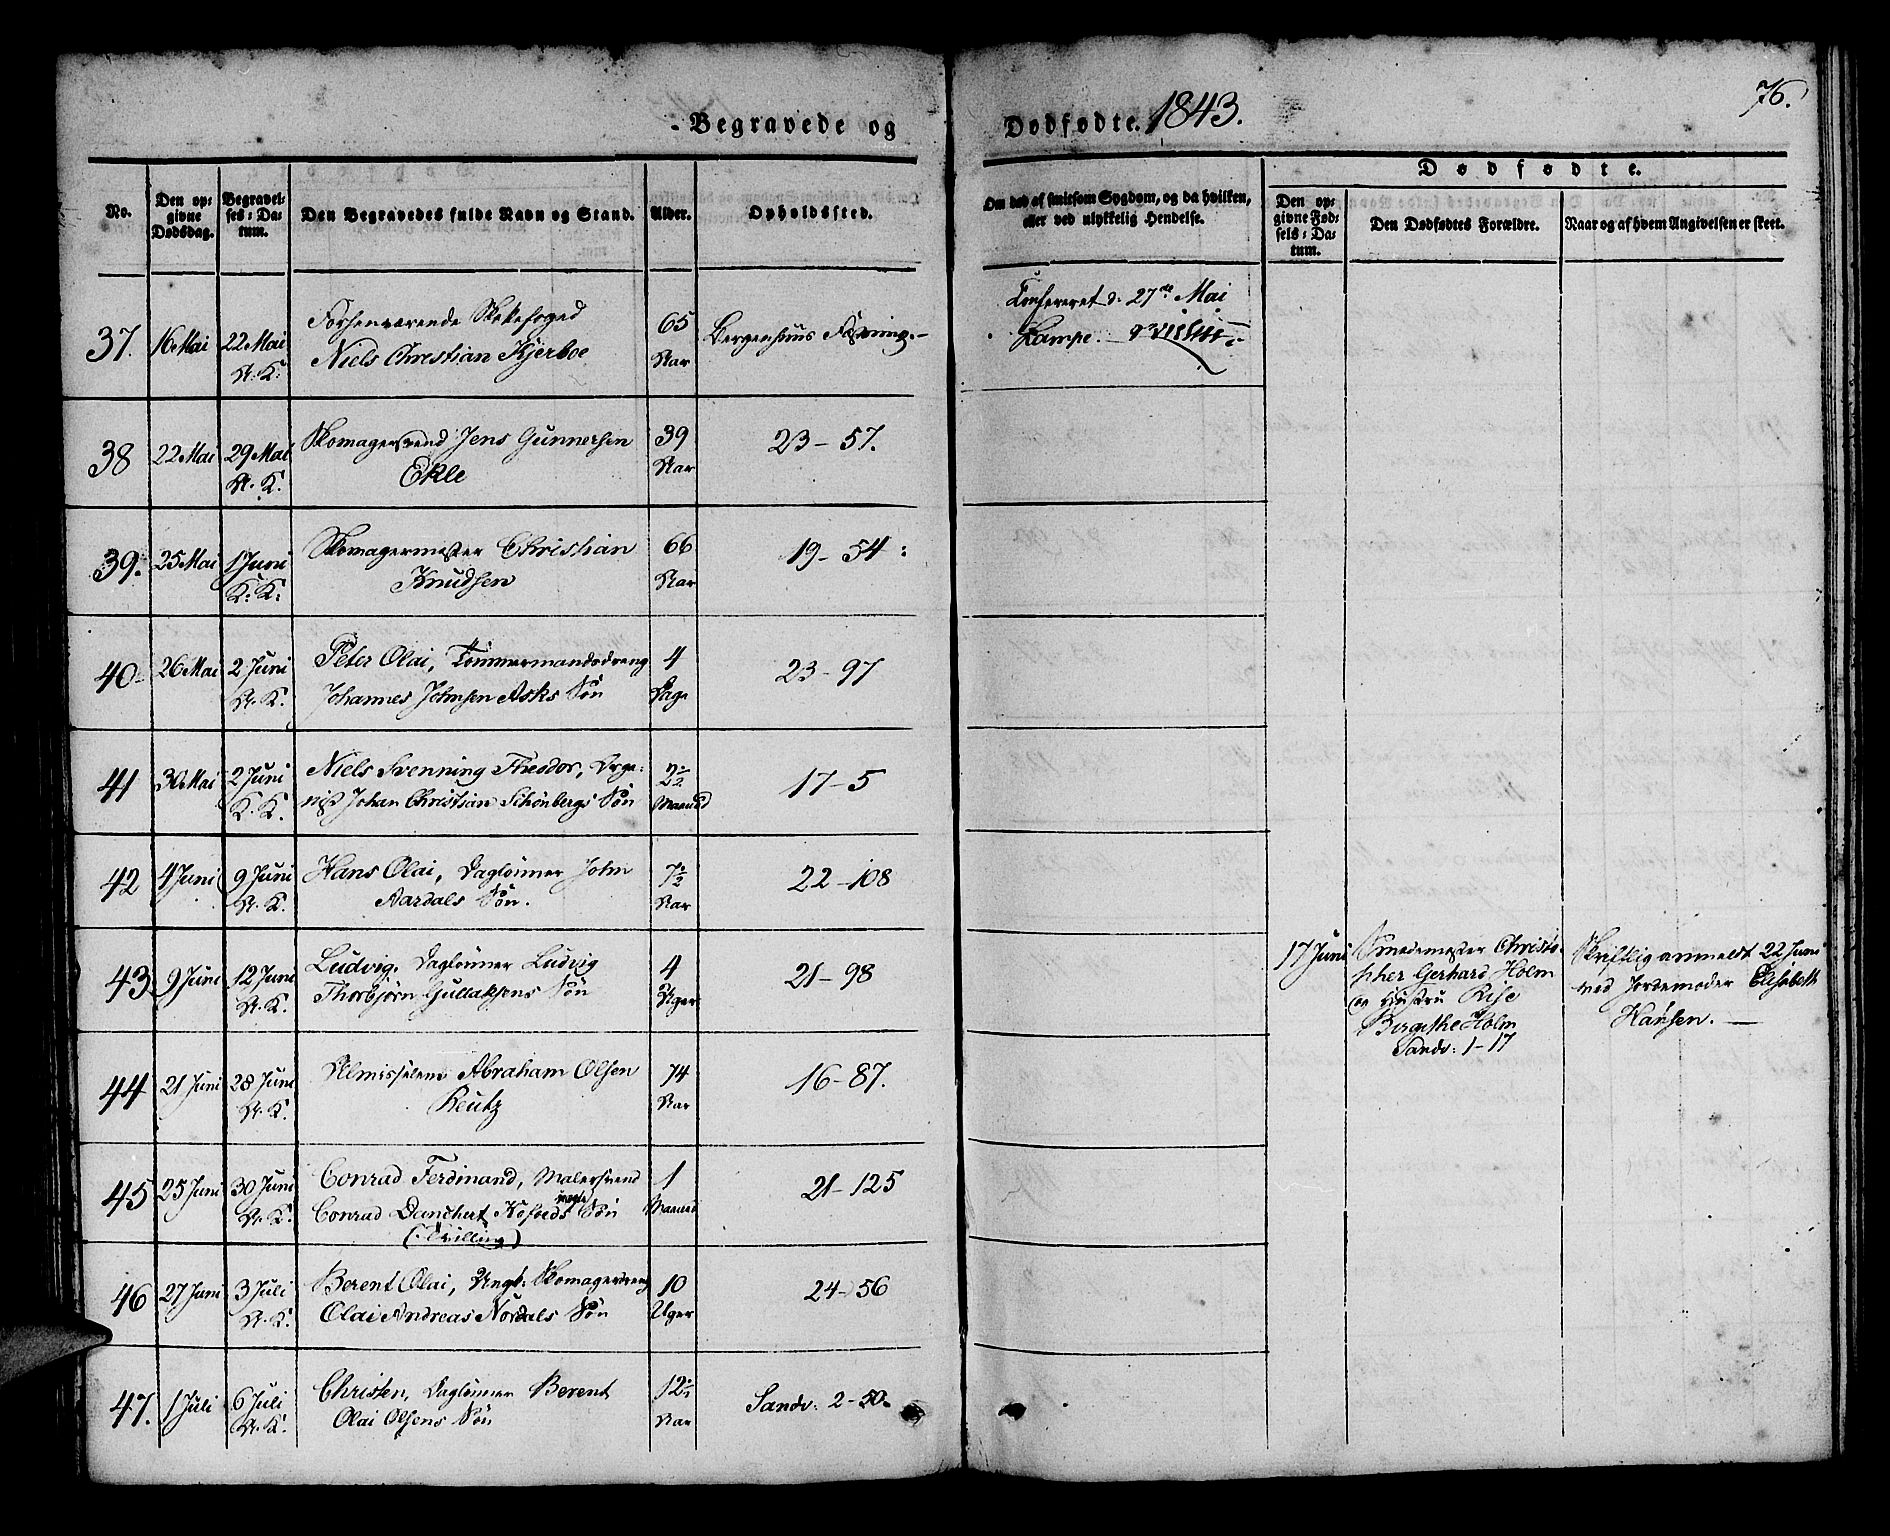 Begravede og
Dødfødte. 1843.
76.
No.
Den op=
givne
Dødsdag.
Begravel=
ses=Da=
tum.
Den Begravedes fulde Navn og Stand.
Alder.
Opholdssted.
Om død af smitsom Sygdom, og da hvilken,
eller ved ulykkelig Hendelse.
Dødfødte.
Den op=
givne Fød=
sels=Da=
tum.
Den Dødfødtes Forældre.
Naar og af hvem Angivelsen er skeet.
37. 16 Mai 22 Mai
N. K:
Niels Christian Kjerboe
65
Aar
Bergenhuus Fæstning.
Confereret d. 27de Mai
Lampe.
38 22 Mai 29 Mai
N. K.
Skomagersvend Jens Gunnersen
Ekle
39
Aar
23 - 57.
39. 25 Mai 1 Juni
K: K:
Skomagermester Christian
Knudsen
66
Aar
19 - 54
40 26 Mai 2 Juni
N. K.
Peter Olai, Tømmermandsdreng
Johannes Johnsen Asks Søn
4
Dage
23 - 97
41 30 Mai 2 Juni
K. K.
Niels Svenning Theodor, Orga=
nist Johan Christian Schønbergs Søn
2½
Maaned
17 - 5
42 4 Juni 9 Juni
N. K.
Hans Olai, Daglønner John
Aardals Søn.
7½
Aar
22 - 108
43 9 Juni 12 Juni
N. K.
Ludvig, Daglønner Ludvig
Thorbjørn Gullaksens Søn
4
Uger
21 - 98
17 Juni
Smedemester Christo=
pher Gerhard Holm
og Hustru Rise
Birgithe Holm
Sandv: 1 - 17
Skriftlig anmeldt 22 Juni
ved Jordemoder Elisabeth
Hansen.
44 21 Juni 28 Juni
N. K.
Almisselem Abraham Olsen
Reutz
74
Aar
16 - 87.
45 25 Juni 30 Juni
N. K.
Conrad Ferdinand, Malersvend
Conrad Danchert Kofoeds Søn
(Tvilling)
1
Maaned
21 - 125
46 27 Juni 3 Juli
N. K.
Berent Olai, Ungk. Skomagerdreng
Olai Andreas Nordals Søn
10
Uger
24 - 56
47. 1 Juli 6 Juli
N. K.
Christen, Daglønner Berent
Olai Olsens Søn
12½
Aar
Sandv: 2 - 50.